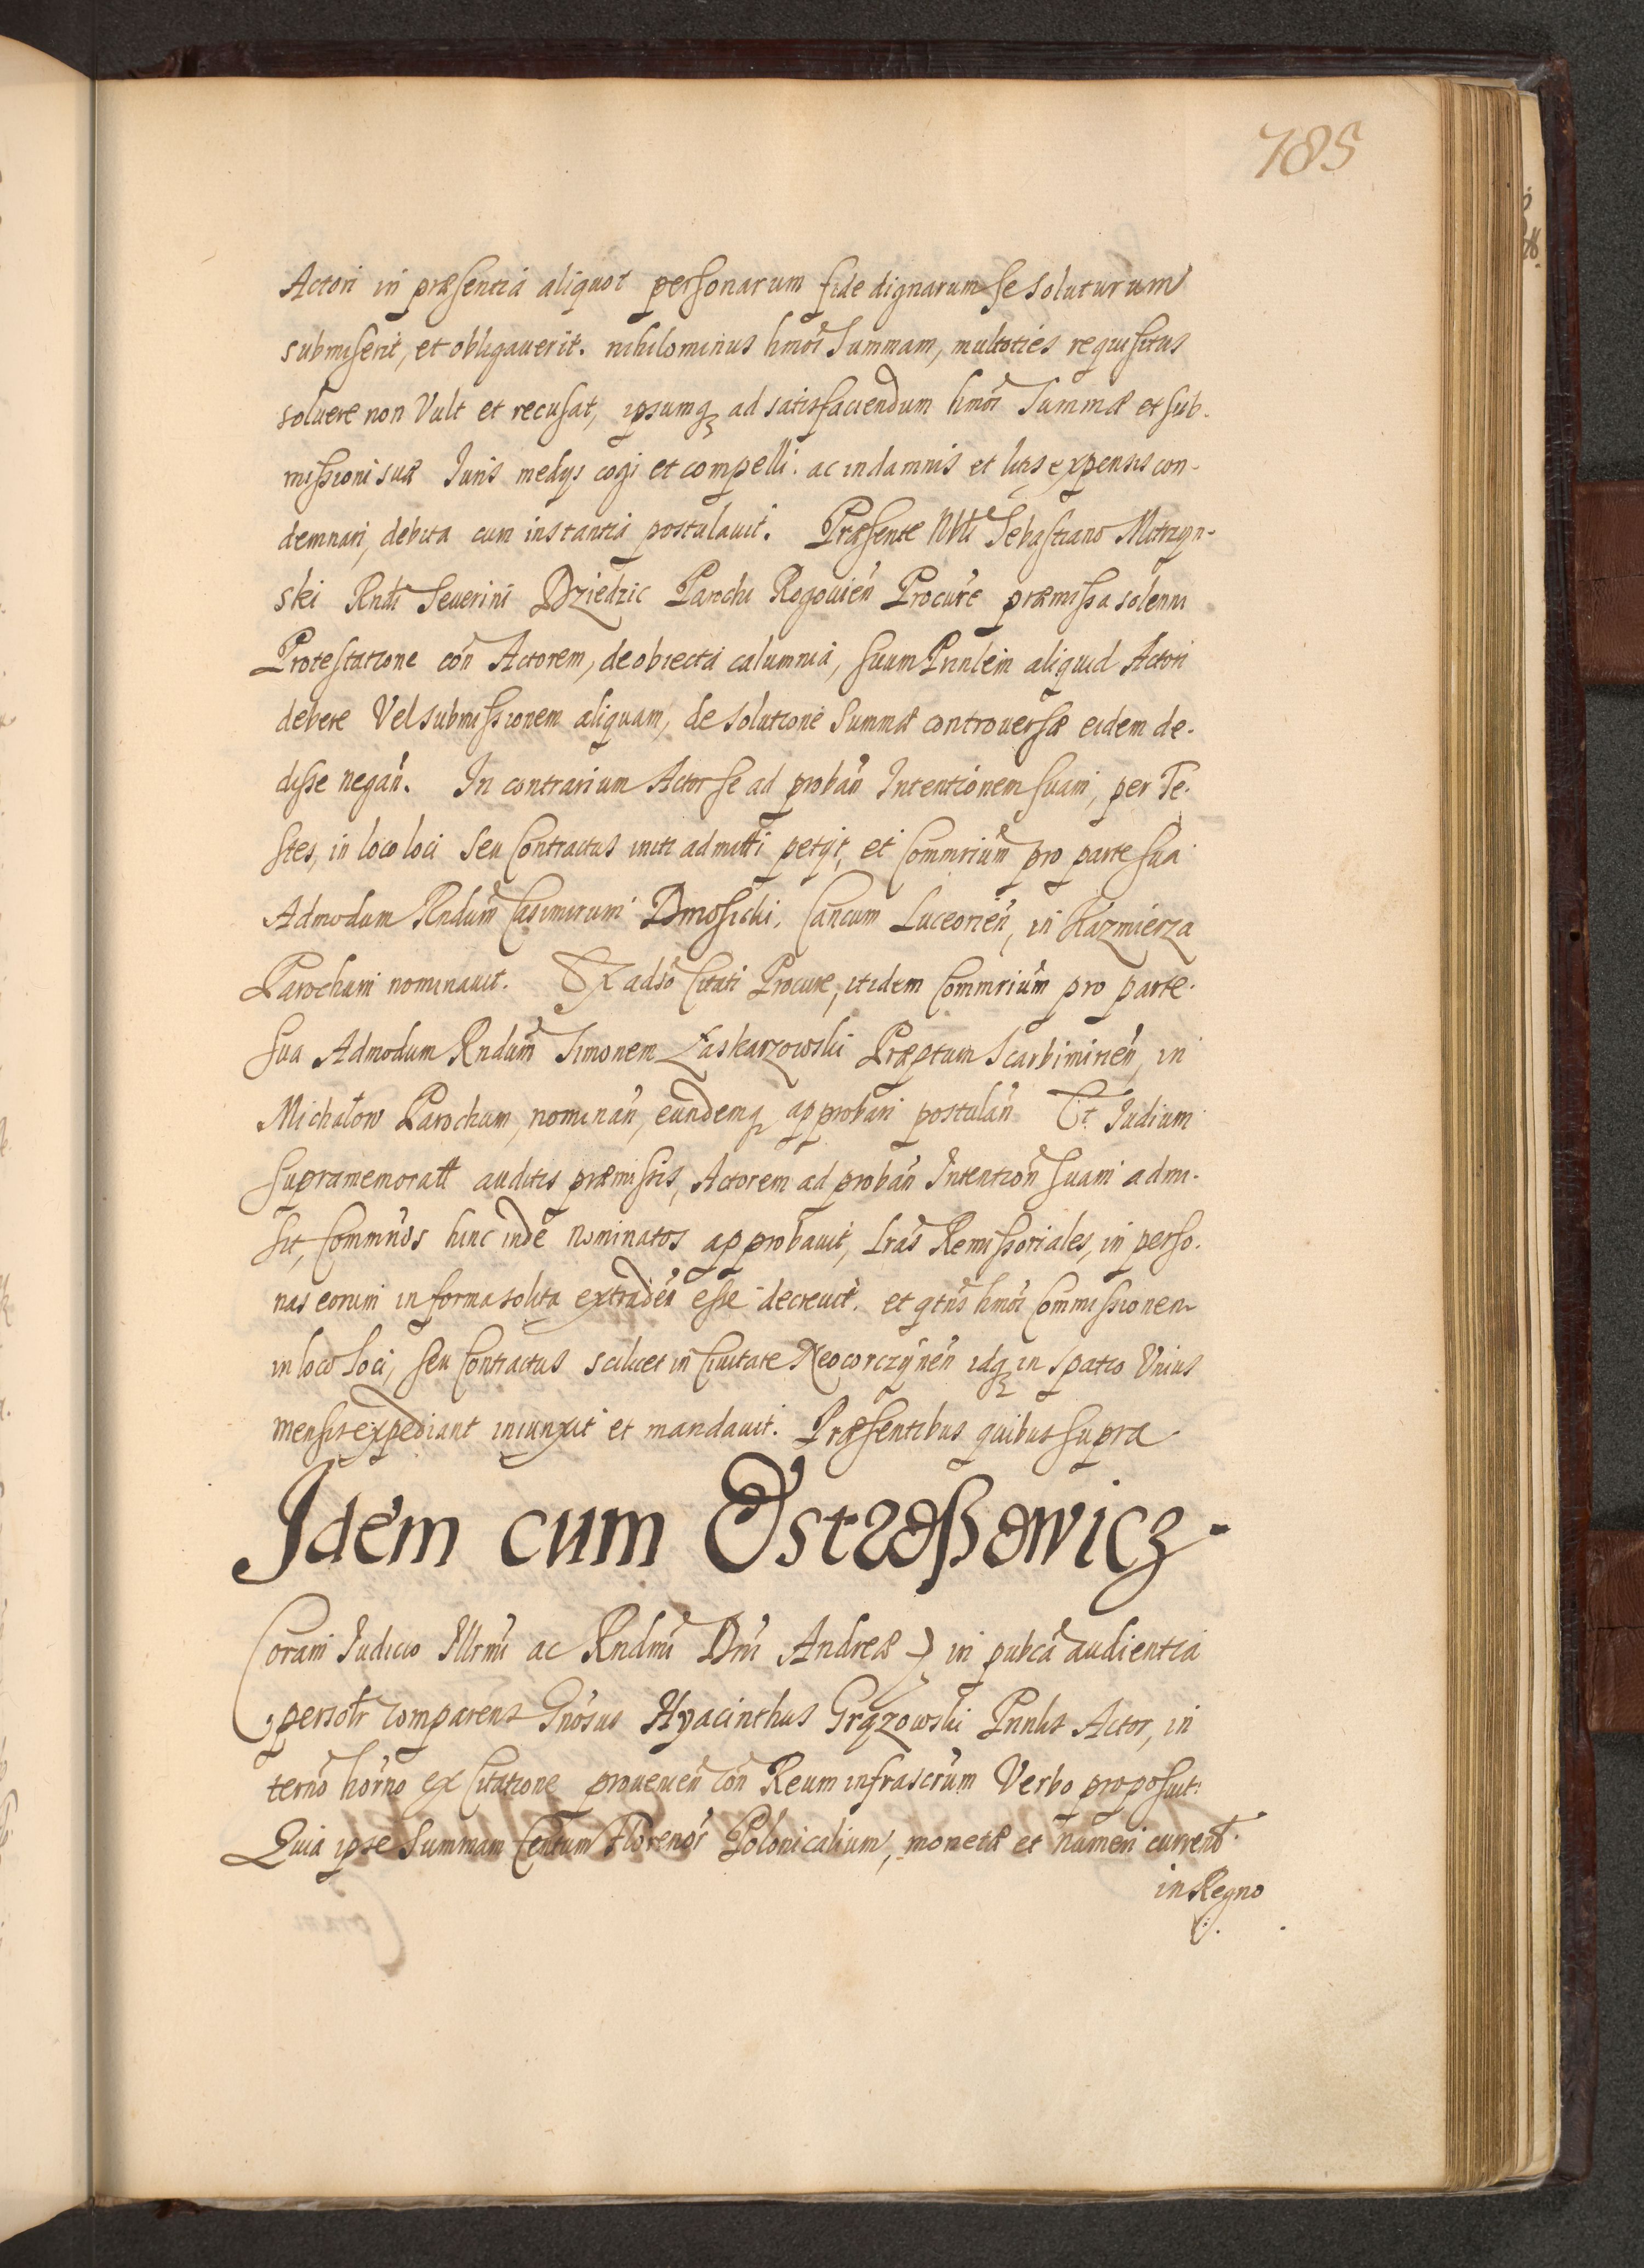 785
Actori in præsentia aliquot personarum fide dignarum se soluturum
submiserit, et obligauerit. nihilominus hmoi Summam, multoties requisitus
soluere non Vult et recusat, ipsumq ad satisfaciendum hmoi Summæ et sub-
missioni suæ Iuris medys cogi et compelli. ac in damnis et litis expensis con-
demnari, debita cum instantia postulauit. Præsente Nbli Sebastiano Mstrzyn-
ski Rndi Seuerini Dziedzic Parochi Rogouien Procure præmissa solenni
Protestatione con Actorem, de obiecta calumnia, suum Prinlem aliquid Actori
debere Vel submissionem aliquam, de solutione Summæ controuersæ eidem de-
disse negan. In contrarium Actor se ad proban Intentionem suam, per Te-
stes, in loco loci seu Contractus initi admitti petyt, et Commrium pro parte sua
Admodum Rndum Casimirum Dmosicki, Cancum Luceorien, in Kazmierza
Parochum nominauit. Ex adso Citati Procure, itidem Commrium pro parte
sua Admodum Rndum Simonem Łaskarzowski Præptum Scarbimirien, in
Michałow Parochum, nominan, eundemq approbari postulan Et Iudium
supramemoratt auditis præmissis, Actorem ad proban Intention suam admi-
sit, Commrios hinc inde nominatos approbauit, Lras Remissoriales, in perso-
nas eorum in forma solita extraden esse decreuit. et qtns hmoi Commissionem
in loco loci, seu Contractus scilicet in Ciuitate Neocorczynen idq in spatio Unius
mensis expediant iniunxit et mandauit. Præsentibus quibus supra
Idem cum Ostroszowicz.
Coram Iudicio Illrmi ac Rndmi Dni Andreæ in pubca audientia
personlr comparens Gnosus Hyacinthus Grązowski Prinlis Actor, in
terno horno ex Citatione proueuen con Reum infrascrum Verbo proposuit:
Quia ipse Summam Centum Florenos Polonicalium, monetæ et numeri current
in Regno